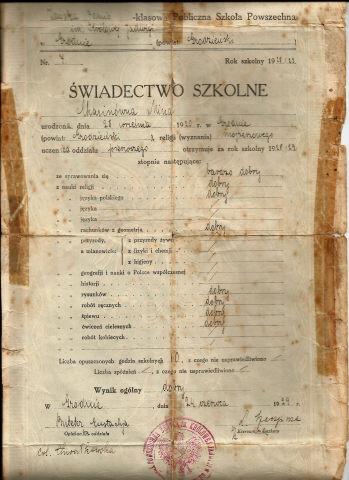 -klasowa Publiczna Szkoła Powszechna
w Grodnie (powiat Grodzieński
Nr. 4 Rok szkolny 19
ŚWIADECTWO SZKOLNE
urodzona, dnia 28 września 1920 r. w Grodnie
(powiat Grodzieński), religji (wyznania)
uczen oddziału pierwszego otrzymuje za rok szkolny 1928-29
stopnie następujące:
ze sprawowania się bardzo dobry
z nauki religji dobry
języka polskiego dobry
języka
języka
rachunków z geometrją dobry
przyrody, z przyrody żywej
a mianowicie: z fizyki i chemji
z higjeny
geografji i nauki o Polsce współczesnej
historji
rysunków dobry
robót ręcznych dobry
śpiewu dobry
ćwiczeń cielesnych dobry
robót kobiecych
Liczba opuszczonych godzin szkolnych 10, z czego nie usprawiedliwiono
Liczba spóźnień, z czego nie usprawiedliwiono
Wynik ogólny dobry
W Grodnie, dnia 24 czerwca 1929 r.
Opiekun oddziału Kierownik Szkoły